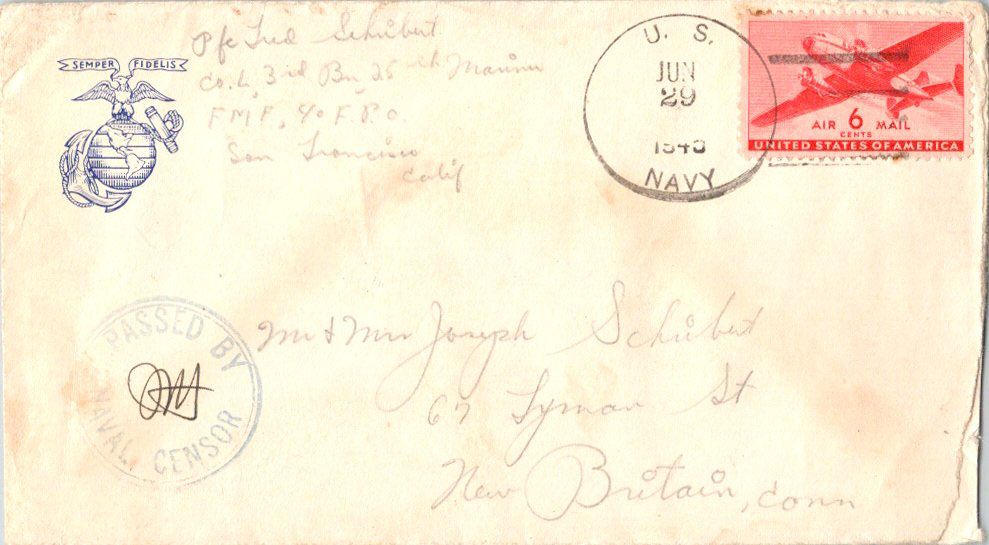 SEMPER FIDELIS
Pfc Fred Schubert
Co. L, 3rd Bn, 25th Marines
F.M.F., c/o F.P.O.
San Francisco
Calif
U. S.
JUN
29
NAVY
AIR 6 MAIL
CENTS
UNITED STATES OF AMERICA
PASSED BY
NAVAL CENSOR
Mr & Mrs Joseph Schubert
67 Lyman St
New Britain, Conn